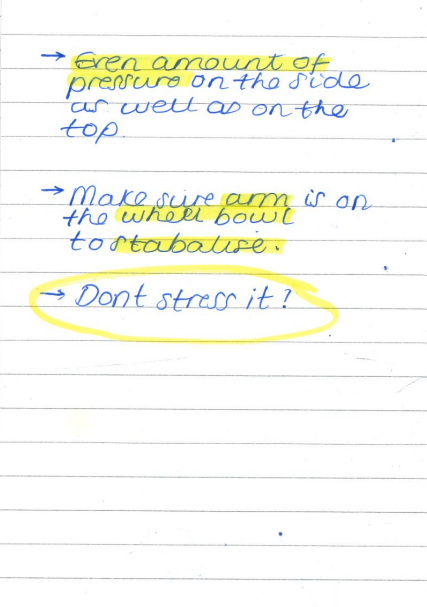 → Even amount of
pressure on the side
as well as on the
top.
→ Make sure arm is on
the wheel bowl
to stabalise.
→ Dont stress it?